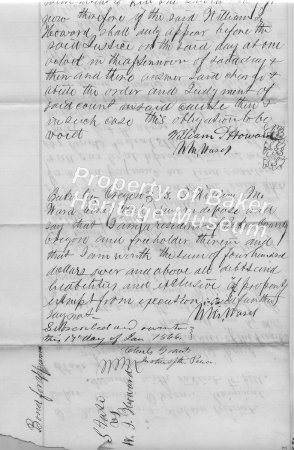 now therefore if the said William J
Howard shall duly appear before the
said Justice on the said day at one
oclock in the afternoon of said day &
then and there answer said charge &
abide the order and Judgment of
said court and said cause then
in such case this obligation to be
void
William J Howard
Wm Ward
Property of Baker
Heritage Museum
Baker Co Oregon ss
Ward being depose and
say that I am a resident
Oregon and freeholder therein and
that I am worth the sum of four hundred
dollars over and above all debts and
liabilities and exclusive of property
exempt from execution and further
say not
Wm Ward
Subscribed and sworn to
this 17 day of Jan 1866
Justice of the Peace
Bond for appearance
State
vs
W. J. Howard